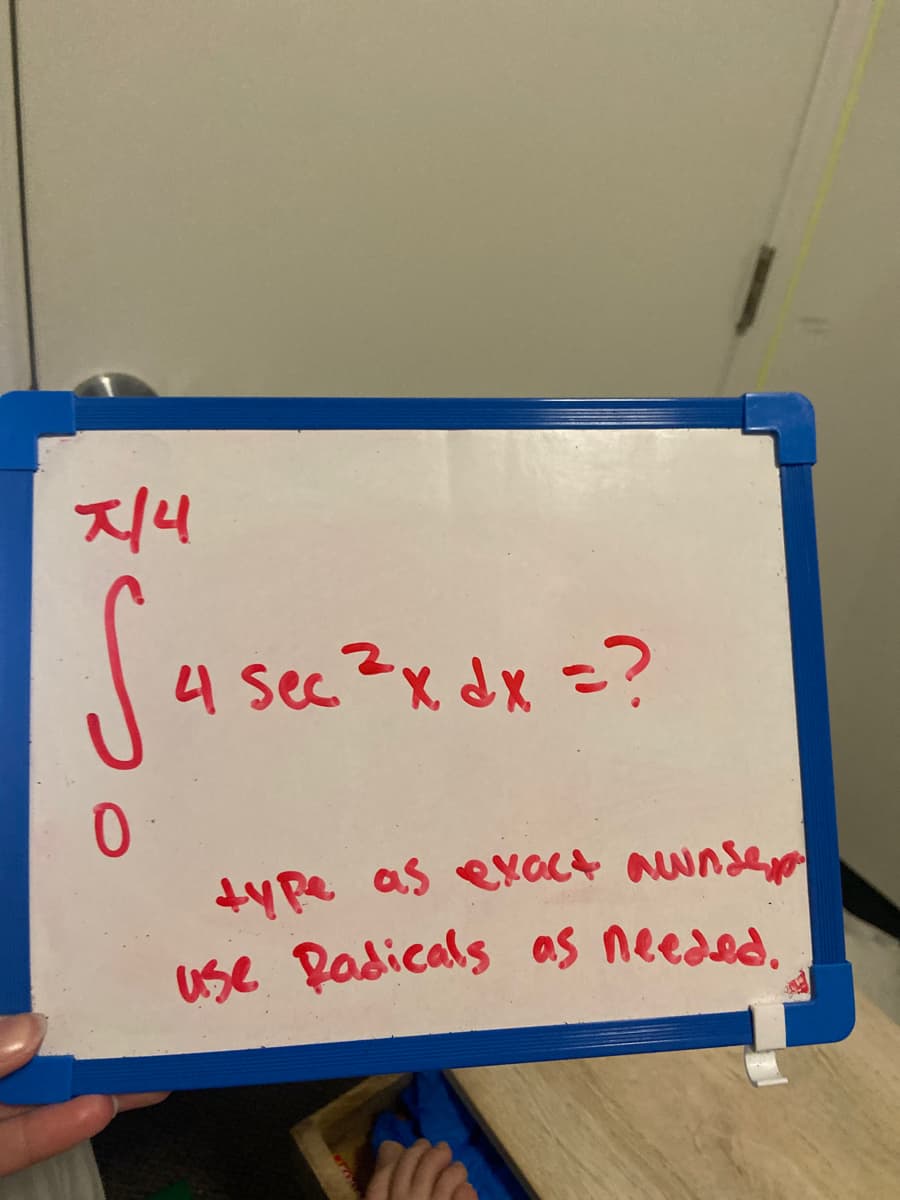 π/4
∫ 4 sec²x dx =?
0
type as exact
use Radicals as needed.